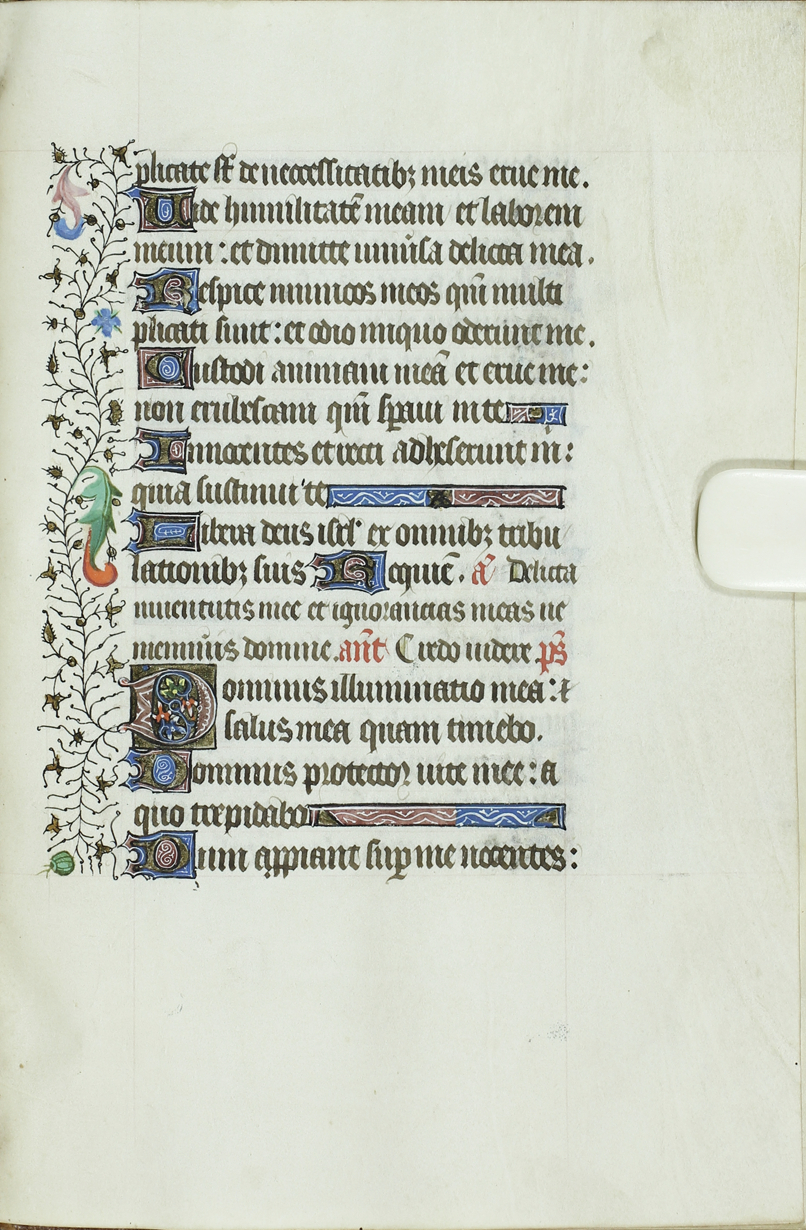 plicate st̄ de necessitatibꝫ meis erue me.
Vide humilitatē meam et laborem
meum : et dimitte uniũsa delicta mea.
Respice inimicos meos qm̄ multi
plicati sunt : et odio iniquo oderunt me.
Custodi animam meā et erue me :
non erubescam qm̄ sꝑaui in te
Innocentes et recti adheserunt m̄ :
quia sustinui te
Libera deus isrl' ex omnibꝫ tribu
lationibꝫ suis Requiē. ā Delicta
iuuentutis mee et ignorancias meas ne
meminĩs domine. añt Credo uidere ps̄
Dominus illuminatio mea : ⁊
salus mea quam timebo.
Dominus protector uite mee : a
quo trepidabo
Dum appiant suꝑ me nocentes :